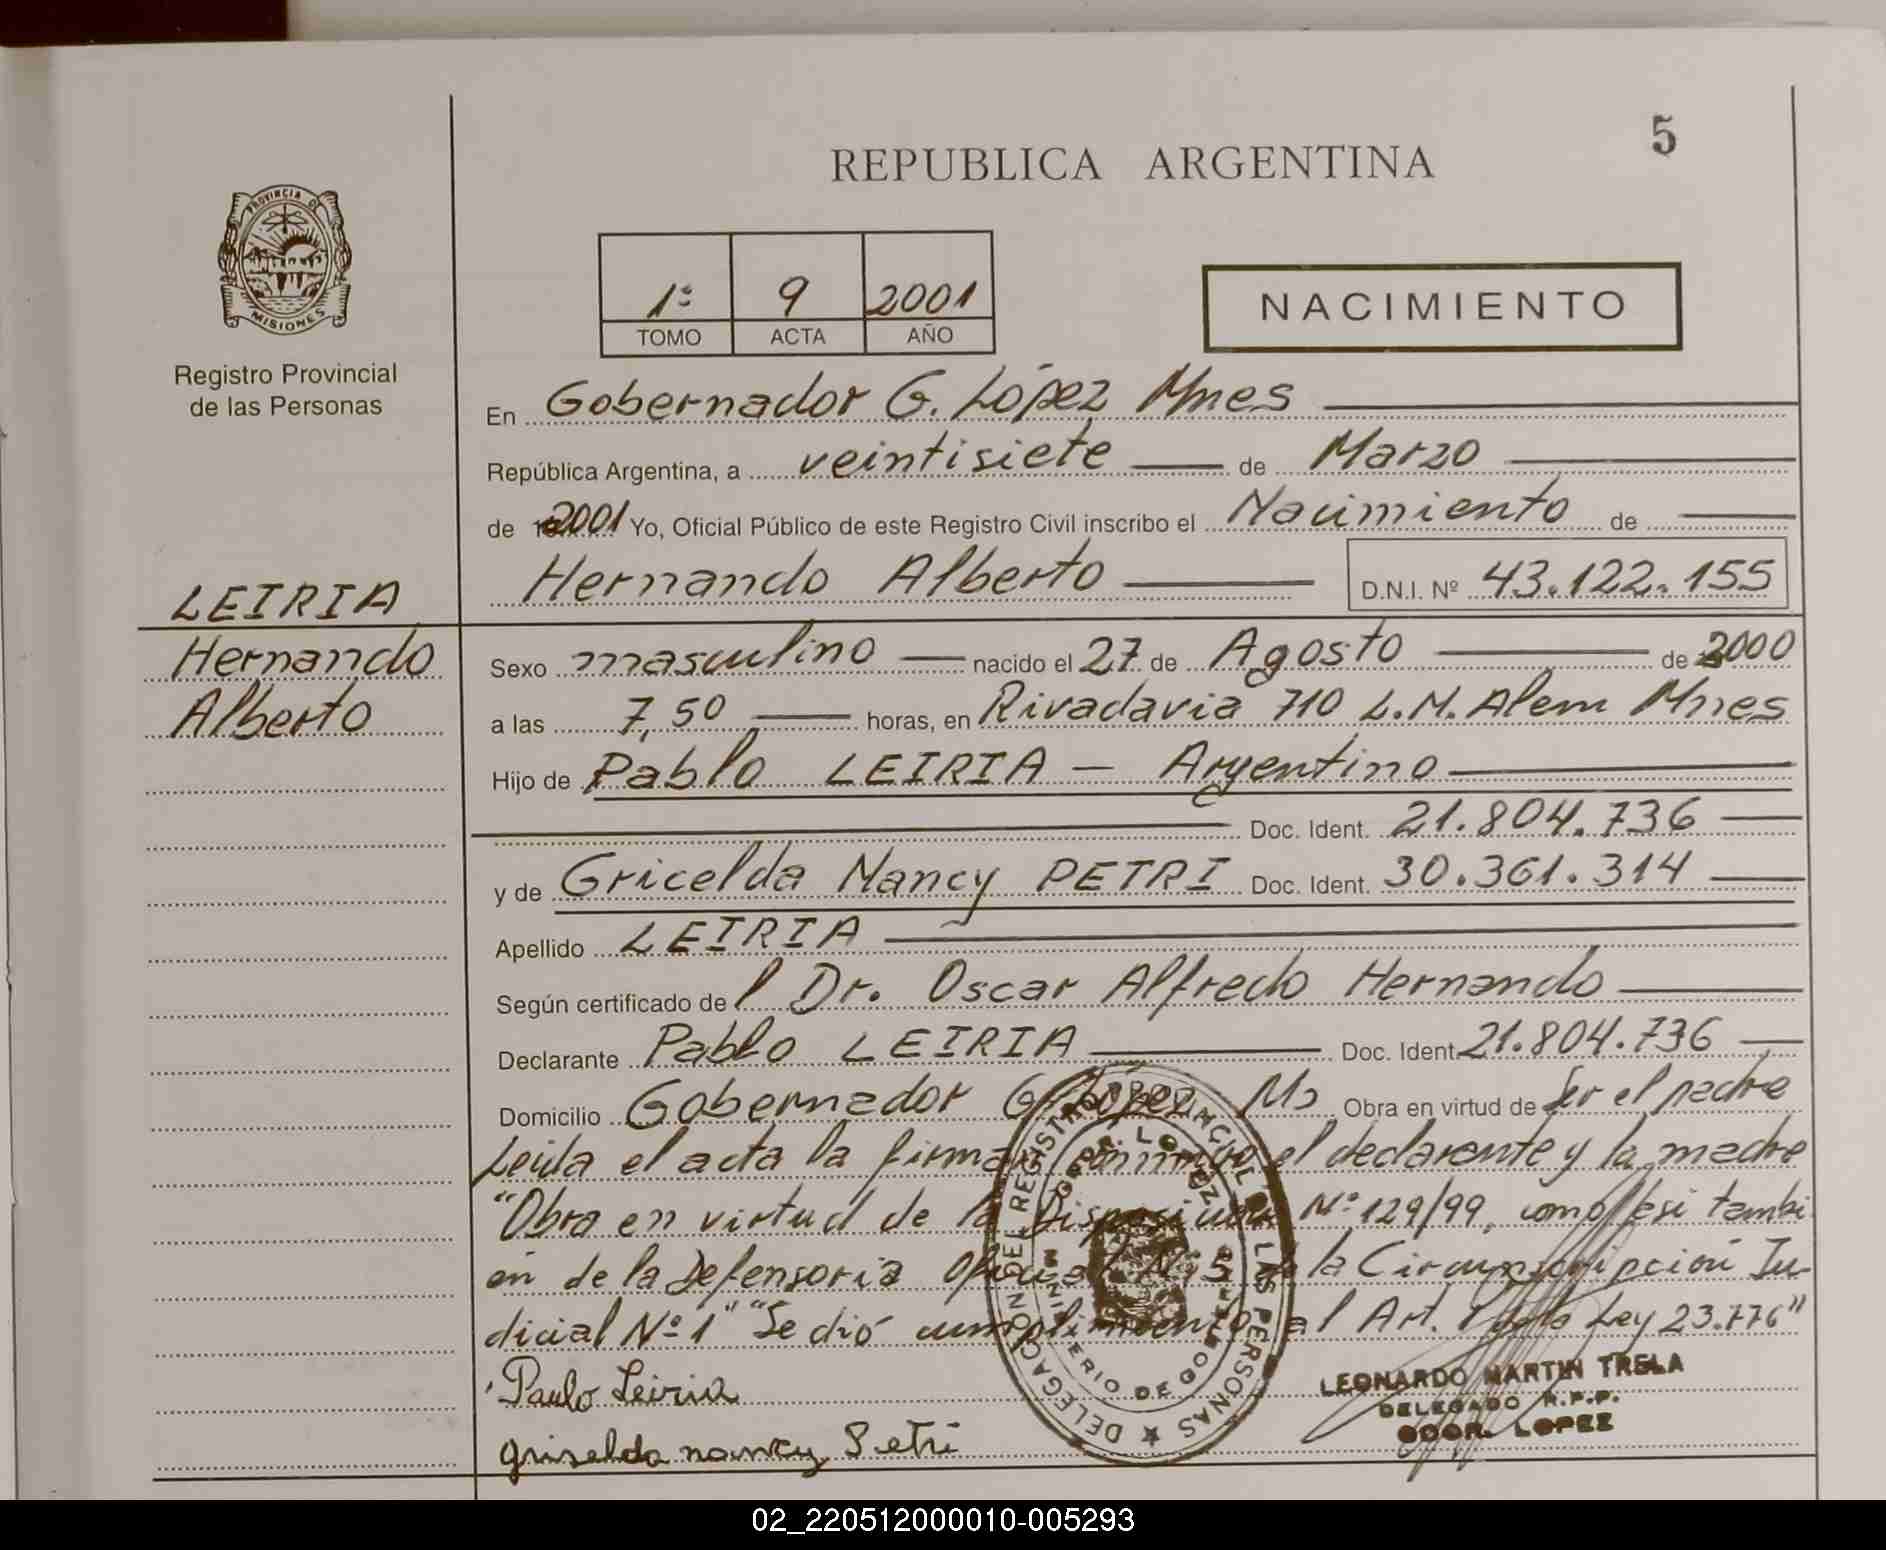 5
REPUBLICA ARGENTINA
PROVINCIA DE
MISIONES
Registro Provincial
de las Personas
1º 9 2001
TOMO ACTA AÑO
NACIMIENTO
En Gobernador G. López Mnes
República Argentina, a veintisiete de Marzo
de 2001 Yo, Oficial Público de este Registro Civil inscribo el Nacimiento de
Hernando Alberto D.N.I. Nº 43.122.155
LEIRIA
Hernando
Alberto
Sexo masculino nacido el 27 de Agosto de 2000
a las 7,50 horas, en Rivadavia 710 L.N. Alem Mnes
Hijo de Pablo LEIRIA – Argentino
Doc. Ident. 21.804.736
y de Gricelda Nancy PETRI Doc. Ident. 30.361.314
Apellido LEIRIA
Según certificado del Dr. Oscar Alfredo Hernando
Declarante Pablo LEIRIA Doc. Ident. 21.804.736
Domicilio Gobernador G. López Ms Obra en virtud de Ser el padre
Leida el acta la firman conmigo el declarante y la madre
"Obra en virtud de la Disposición Nº 129/99, como asi tambi
en de la Defensoria Oficial Nº 5 de la Circunscripción Ju-
dicial Nº 1" "Se dió cumplimiento al Art. 1 de la Ley 23.776"
Paulo Leiria
griselda nancy Petri
DELEGACIÓN DEL REGISTRO PROVINCIAL DE LAS PERSONAS
GDOR. LOPEZ
MINISTERIO DE GOBIERNO
LEONARDO MARTIN TRELA
DELEGADO R.P.P.
GDOR. LOPEZ
02_220512000010-005293